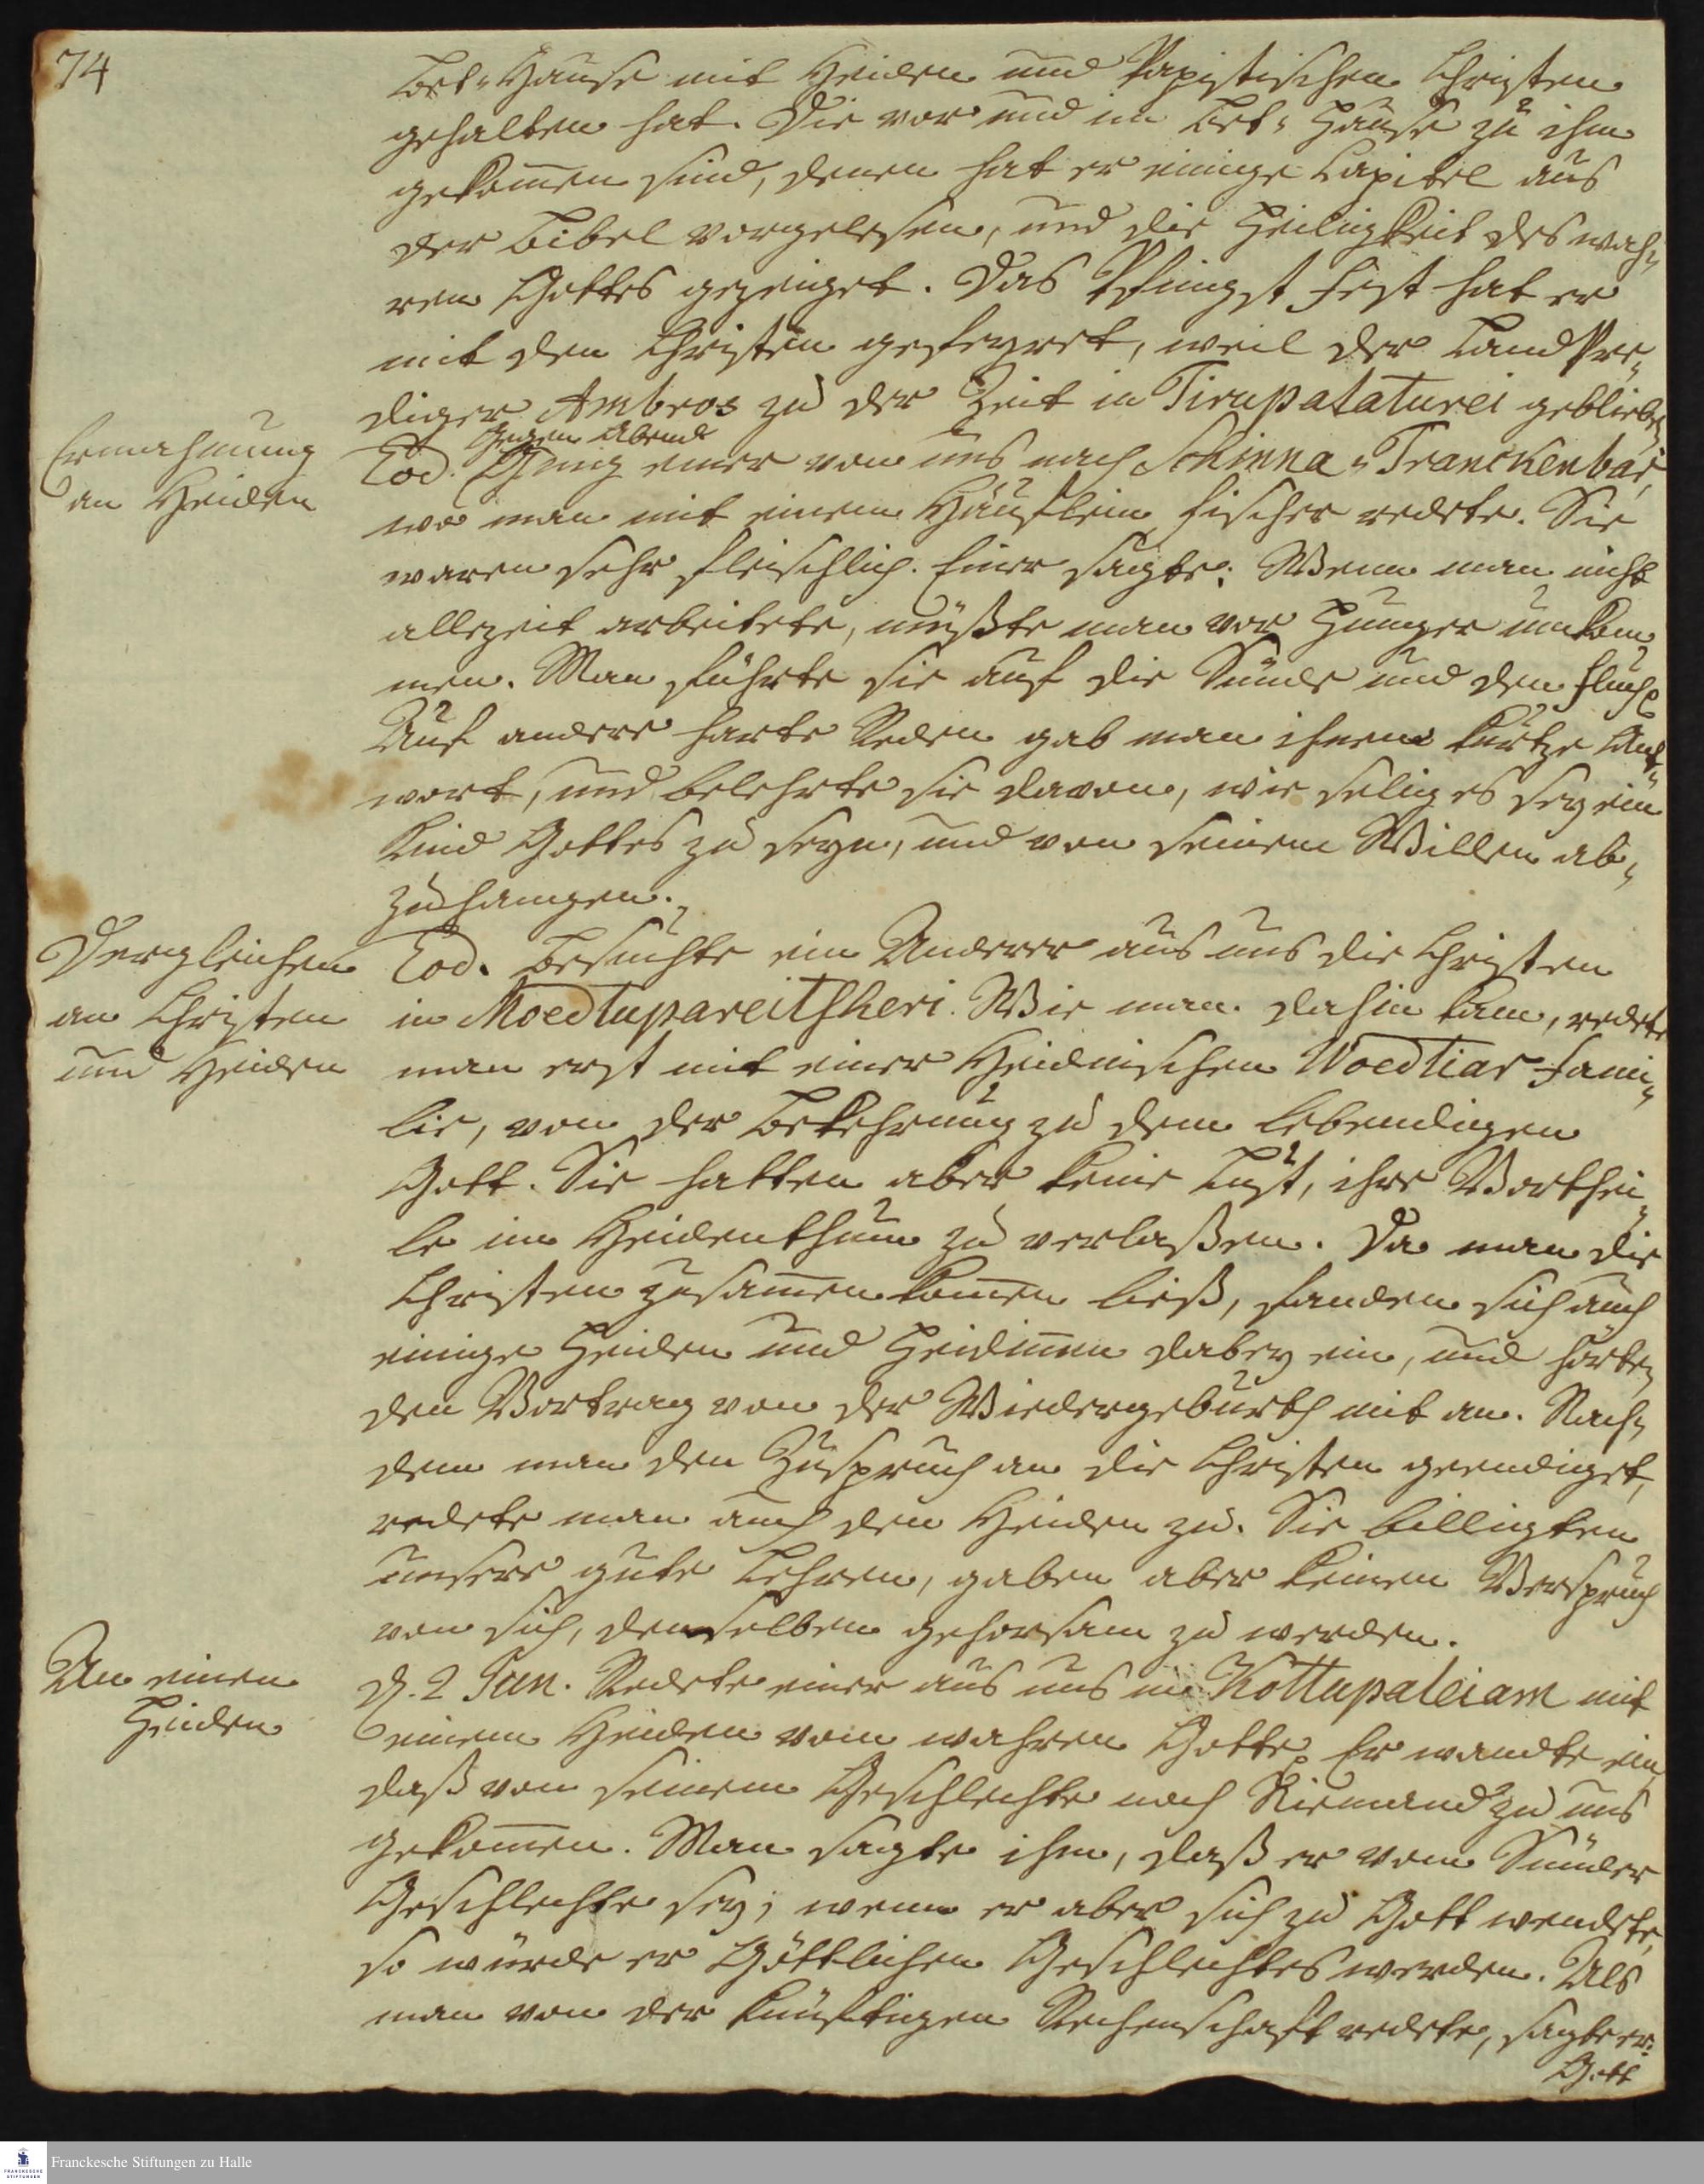 74
Bet-Hause mit Heiden und Papistischen Christen
gehalten hat. Die vor und im Bet-Hause zu ihm
gekom̄en sind, denen hat er einige Capitel aus
der Bibel vorgelesen, und die Heiligkeit des wah-
ren Gottes gezeiget. Das Pfingst Fest hat er
mit den Christen gefeyret, weil der Land Pre-
diger Ambros zu der Zeit in Tirupalaturei geblieben
Ermahnung
an Heiden
Gegen Abend
Eod. Gieng einer von uns nach Schinna-Tranckenbar,
wo man mit einem Häuflein Fischer redete. Sie
waren sehr fleischlich. Einer sagte: Wenn man nicht
allezeit arbeitete, müßte man vor Hunger umkom-
men. Man führte sie auf die Sünde und den Fluch
Auf andere harte Reden gab man ihnen kurtze Ant-
wort, und belehrte sie davon, wie selig es sey ein
Kind Gottes zu seyn, und von seinem Willen ab-
zuhangen.
Dergleichen
an Christen
und Heiden
Eod. Besuchte ein Anderer aus uns die Christen
in Moedlupareitscheri. Wie man dahin kam, redete
man erst mit einer Heidnischen Woedtiar Fami-
lie, von der Bekehrung zu dem lebendigen
Gott. Sie hatten aber keine Lust, ihre Vorthei-
le im Heidenthum zu verlaßen. Da man die
Christen zusam̄en kom̄en ließ, fanden sich auch
einige Heiden und Heidin̄en dabey ein, und hörten
den Vortrag von der Wiedergeburth mit an. Nach-
dem man den Zuspruch an die Christen geendiget,
redete man auch den Heiden zu. Sie billigten
unsere gute Lehren, gaben aber keinen Verspruch
von sich, denselben gehorsam zu werden.
An einen
Heiden
D. 2 Jun. Redete einer aus uns in Kottupaleiam mit
einem Heiden vom wahren Gotte. Er wandte ein,
daß von seinem Geschlechte noch Niemand zu uns
gekom̄en. Man sagte ihm, daß er vom Sünder
Geschlechte sey; wenn er aber sich zu Gott wendete,
so würde er Göttlichen Geschlechtes werden. Als
man von der künftigen Rechenschaft redete, sagte er:
Gott
FRANCKESCHE
STIFTUNGEN
Franckesche Stiftungen zu Halle